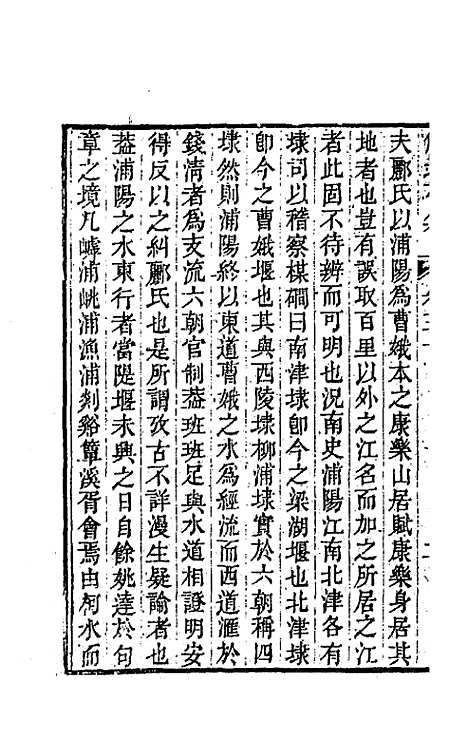 夫酈氏以浦陽爲曹娥本之康樂山居賦康樂身居其
地者也豈有誤取百里以外之江名而加之所居之江
者此固不待辨而可明也況南史浦陽江南北津各有
埭司以稽察棋礀曰南津埭卽今之梁湖堰也北津埭
卽今之曹娥堰也其與西陵埭柳浦埭實於六朝稱四
埭然則浦陽終以東道曹娥之水爲經流而西道滙於
錢淸者爲支流六朝官制葢班班足與水道相證明安
得反以之糾酈氏也是所謂攷古不詳漫生疑論者也
葢浦陽之水東行者當隄堰未興之日自餘姚達於句
章之境凡嵊浦姚浦漁浦剡谿簞溪胥會焉由柯水而